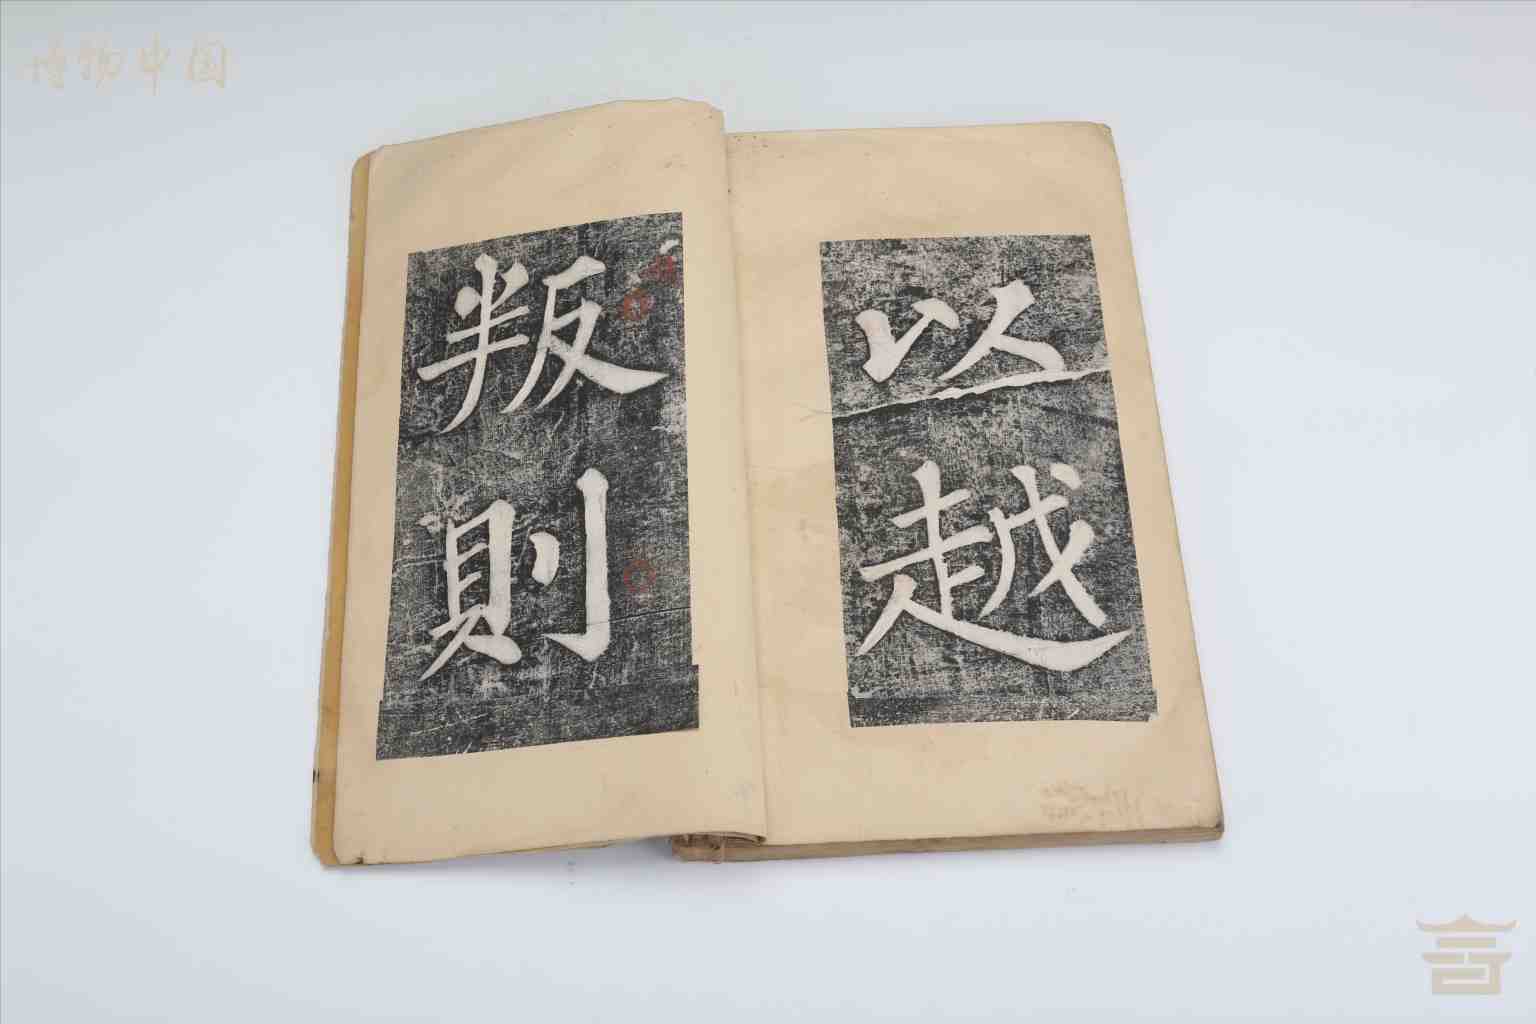 博物中国
以越
叛則